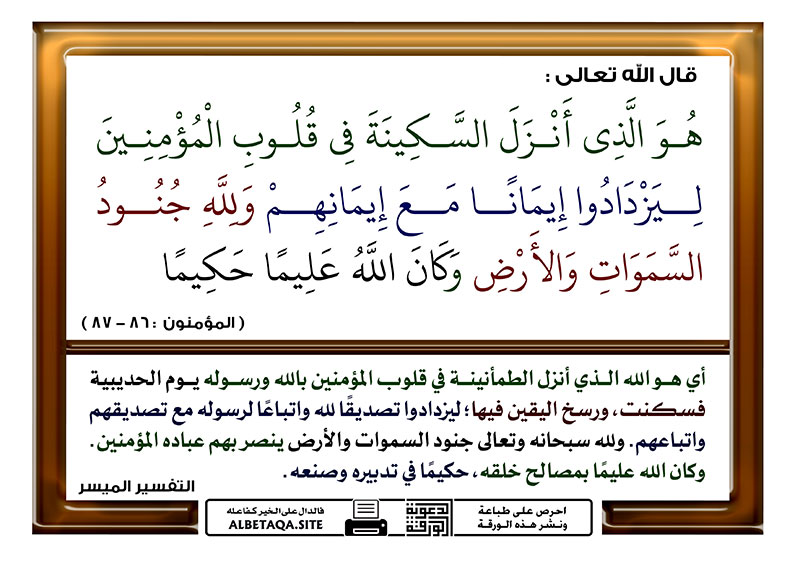 قال الله تعالى :
هُوَ الَّذِى أَنْزَلَ السَّكِينَةَ فِى قُلُوبِ الْمُؤْمِنِينَ
لِيَزْدَادُوا إِيمَانًا مَعَ إِيمَانِهِمْ وَلِلَّهِ جُنُودُ
السَّمَوَاتِ وَالأَرْضِ وَكَانَ اللَّهُ عَلِيمًا حَكِيمًا
( المؤمنون : ٨٦ - ٨٧ )
أي هو الله الذي أنزل الطمأنينة في قلوب المؤمنين بالله ورسوله يوم الحديبية
فسكنت، ورسخ اليقين فيها؛ ليزدادوا تصديقًا لله واتباعًا لرسوله مع تصديقهم
واتباعهم. ولله سبحانه وتعالى جنود السموات والأرض ينصر بهم عباده المؤمنين.
وكان الله عليمًا بمصالح خلقه، حكيمًا في تدبيره وصنعه.
التفسير الميسر
احرص على طباعة
ونشر هذه الورقة
الورقة الدعوية
فالدال على الخير كفاعله
ALBETAQA.SITE